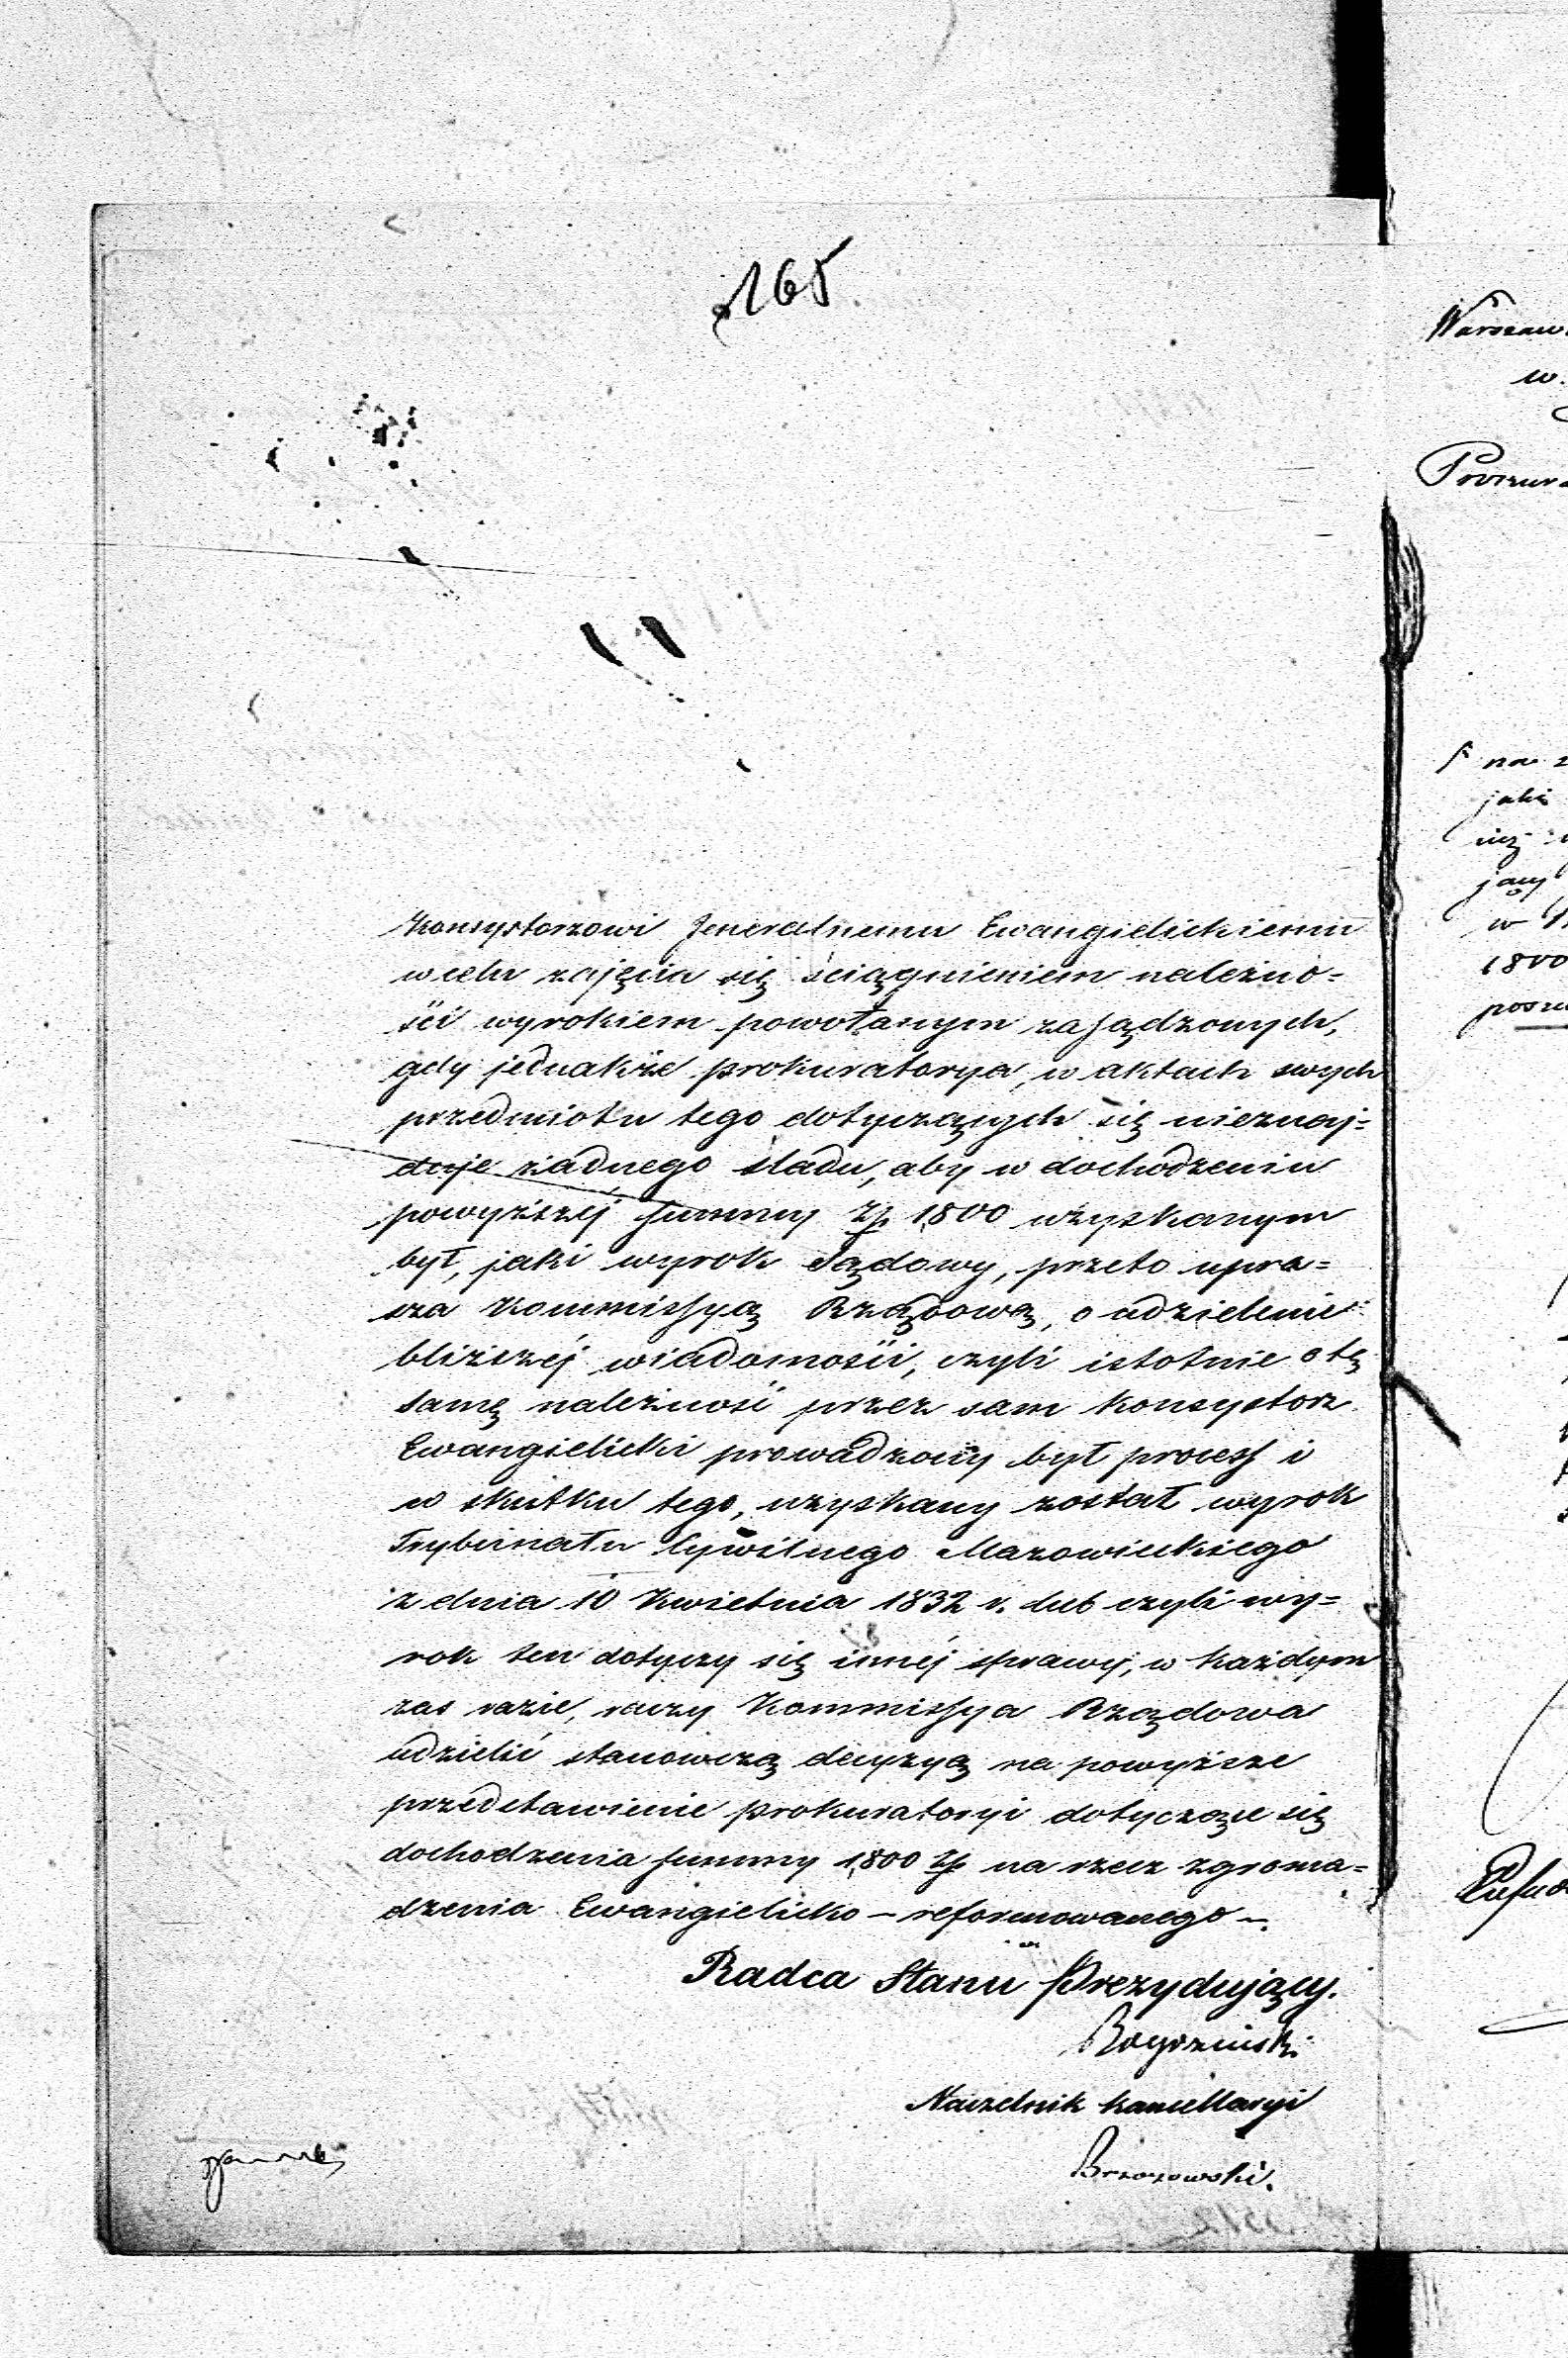 165
Konsystorzowi Jeneralnemu Ewangielickiemu
w celu zajęcia się ściągnieniem należno=
ści wyrokiem powołanym zasądzonych,
gdy jednakże prokuratorya, w aktach swych
przedmiotu tego dotyczących się nieznaj=
duje żadnego śladu, aby w dochodzeniu
powyższej summy Zł 1,800 uzyskanym
był, jaki wyrok Sądowy, przeto upra=
sza Kommissyą Rządową, o udzielenie
bliższej wiadomości, czyli istotnie o tę
samę należność przez sam Konsystorz
Ewangielicki prowadzony był process i
w skutku tego, uzyskany został wyrok
Trybunału Cywilnego Mazowieckiego
z dnia 10 Kwietnia 1832 r. lub czyli wy=
rok ten dotyczy się innéj sprawy, w każdym
zas razie, raczy Kommissya Rządowa
udzielić stanowczą decyzyą na powyższe
przedstawienie prokuratoryi dotyczące się
dochodzenia summy 1,800 Zł na rzecz zgroma=
dzenia Ewangielicko – reformowanego –.
Radca Stanu Prezydujący.
Naczelnik kancellaryi
Brzozowski.
Warszaw
w.
Prokura
na
jaki
w
1800